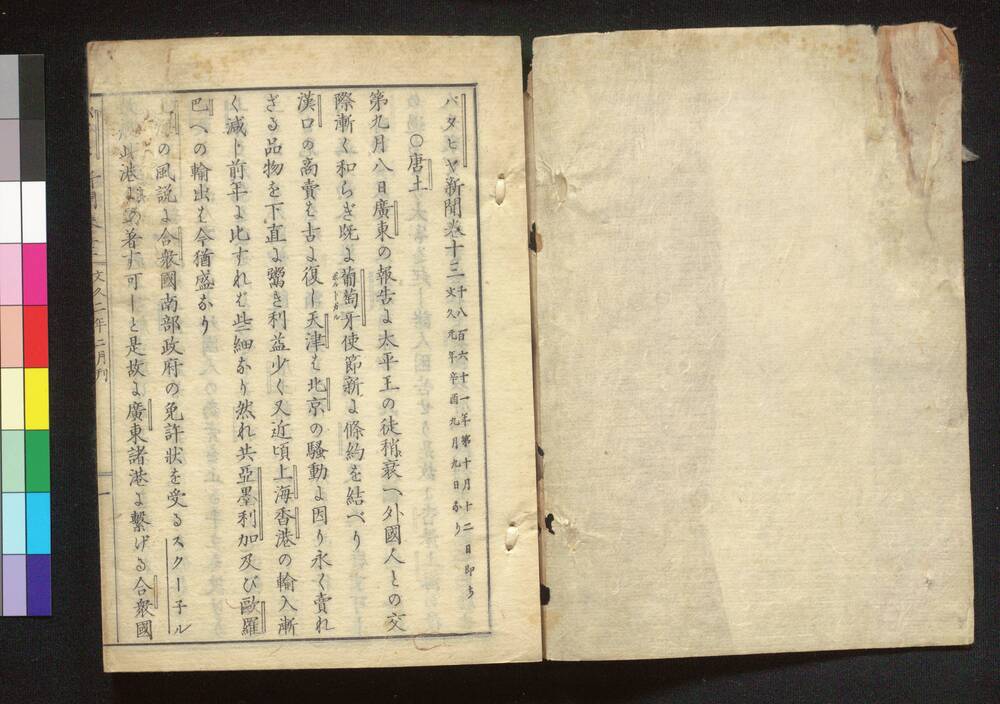 バタヒヤ新聞巻十三 千八百六十一年第十月十二日即ち
文久元年辛酉九月九日なり
○唐土
第九月八日廣東の報告に太平王の徒稍衰へ外國人との交
際漸く和らぎ既に葡萄牙使節新に條約を結べり
ポルトガル
漢口の商賣は古に復し天津は北京の騒動に因り永く賣れ
ざる品物を下直に鬻き利益少く又近頃上海香港の輸入漸
く減じ前年に比すれは些細なり然れ共亞墨利加及び歐羅
巴への輸出は今猶盛なり
の風説に合衆國南部政府の免許状を受るスクー子ル
此港に着す可しと是故に廣東諸港に繋げる合衆國
文久二年二月刊
一